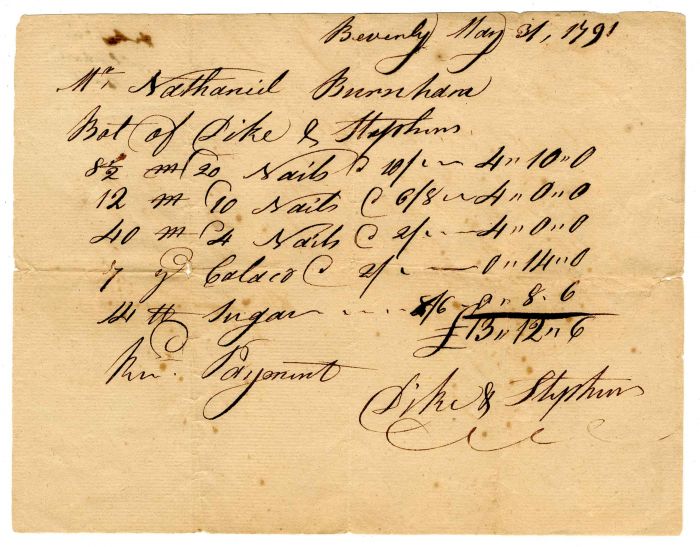 Beverly May 31, 1791
Mr Nathaniel Burnham
Bot of Dike & Stephens
8½ m 20 Nails @ 10/ 4 " 10 " 0
12 m 10 Nails @ 6/8 4 " 0 " 0
40 m 4 Nails @ 2/ 4 " 0 " 0
7 yd Calaco @ 2/ 0 " 14 " 0
14 lb Sugar 8/6 0 " 8 " 6
£13 " 12 " 6
Recd. Payment
Dike & Stephens